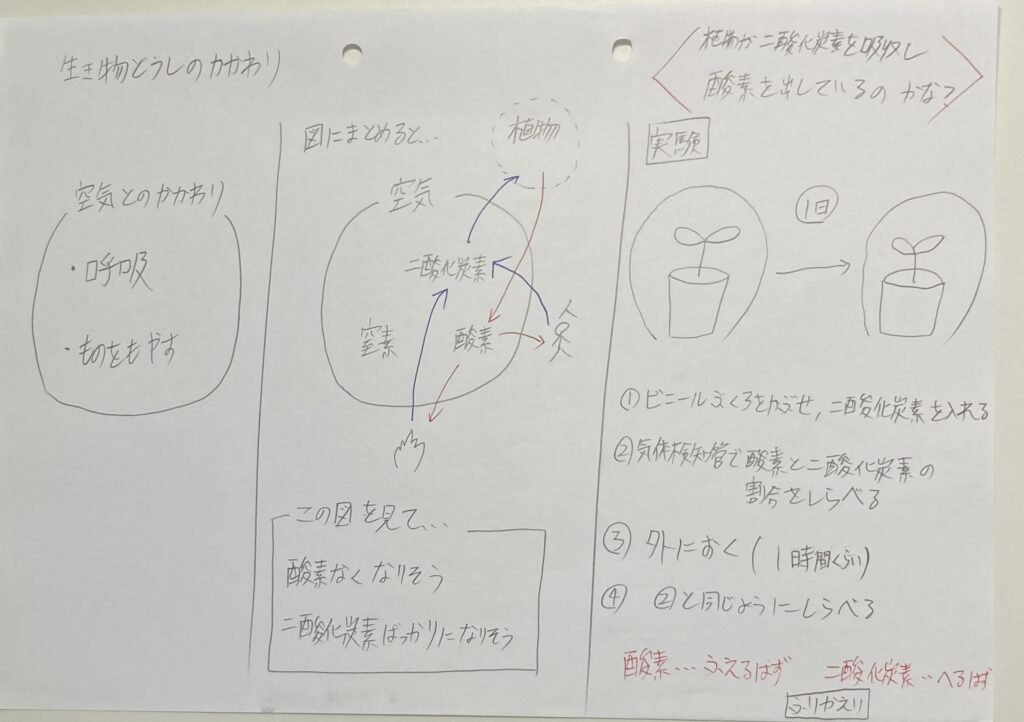 生き物どうしのかかわり
空気とのかかわり
・呼吸
・ものをもやす
図にまとめると…
植物
空気
二酸化炭素
窒素
酸素
人
この図を見て…
酸素なくなりそう
二酸化炭素ばっかりになりそう
植物が二酸化炭素を吸収し
酸素を出しているのかな?
実験
1日
①ビニールぶくろをかぶせ,二酸化炭素を入れる
②気体検知管で酸素と二酸化炭素の
割合をしらべる
③外におく(1時間くらい)
④ ②と同じようにしらべる
酸素…ふえるはず 二酸化炭素…へるはず
ふりかえり